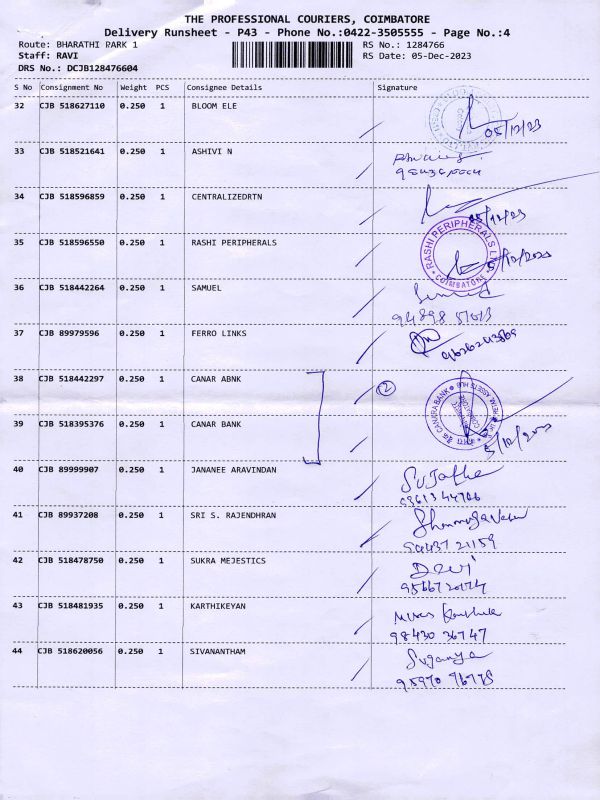 THE PROFESSIONAL COURIERS, COIMBATORE
Delivery Runsheet - P43 - Phone No.:0422-3505555 - Page No.:4
Route: BHARATHI PARK 1 RS No.: 1284766
Staff: RAVI RS Date: 05-Dec-2023
DRS No.: DCJB128476604
S No Consignment No Weight PCS Consignee Details Signature
32 CJB 518627110 0.250 1 BLOOM ELE
05/12/23
33 CJB 518521641 0.250 1 ASHIVI N
34 CJB 518596859 0.250 1 CENTRALIZEDRTN
05/12/23
35 CJB 518596550 0.250 1 RASHI PERIPHERALS
RASHI PERIPHERALS
COIMBATORE
36 CJB 518442264 0.250 1 SAMUEL
37 CJB 89979596 0.250 1 FERRO LINKS
38 CJB 518442297 0.250 1 CANAR ABNK
2
CANARA BANK
39 CJB 518395376 0.250 1 CANAR BANK
40 CJB 89999907 0.250 1 JANANEE ARAVINDAN
Sujatha
41 CJB 89937208 0.250 1 SRI S. RAJENDHRAN
94437 21159
42 CJB 518478750 0.250 1 SUKRA MEJESTICS
Devi
43 CJB 518481935 0.250 1 KARTHIKEYAN
98430 36747
44 CJB 518620056 0.250 1 SIVANANTHAM
Suganya